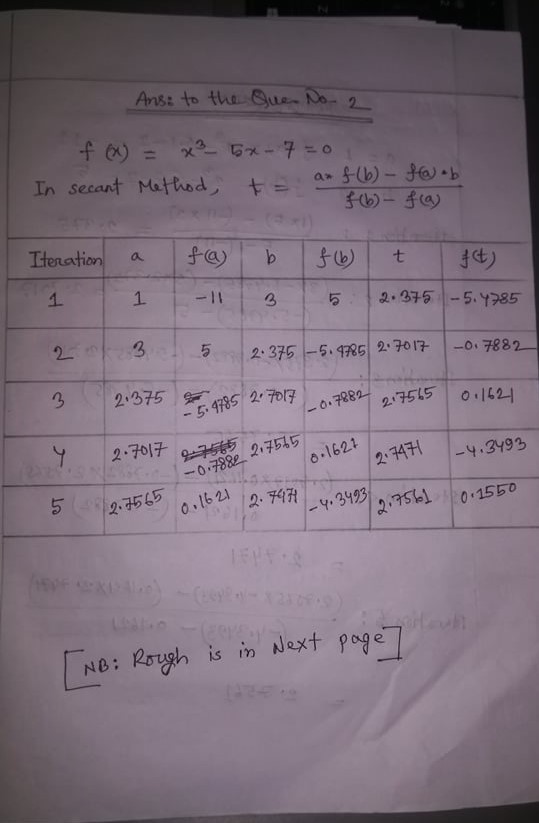 Ans: to the Ques No- 2
f(x) = x³- 5x - 7 = 0
In secant Method, t = a× f(b) - f(a) • b / f(b) - f(a)
Iteration a f(a) b f(b) t f(t)
1 1 -11 3 5 2.375 -5.4785
2 3 5 2.375 -5.4785 2.7017 -0.7882
3 2.375 -5.4785 2.7017 -0.7882 2.7565 0.1621
4 2.7017 -0.7882 2.7565 0.1621 2.7471 -4.3493
5 2.7565 0.1621 2.7471 -4.3493 2.7561 0.1550
[NB: Rough is in Next page]